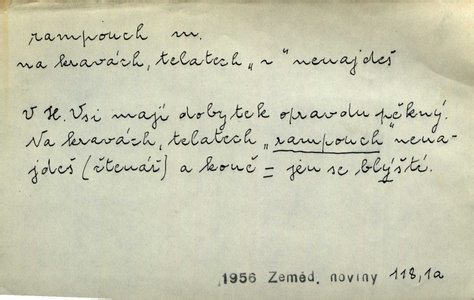 rampouch m.
na kravách, telatech „r“ nenajdeš
V H. Vsi mají dobytek opravdu pěkný.
Na kravách, telatech „rampouch“ nena-
jdeš (čtenář) a koně = jen se blýště.
1956 Zeměd. noviny 118,1a